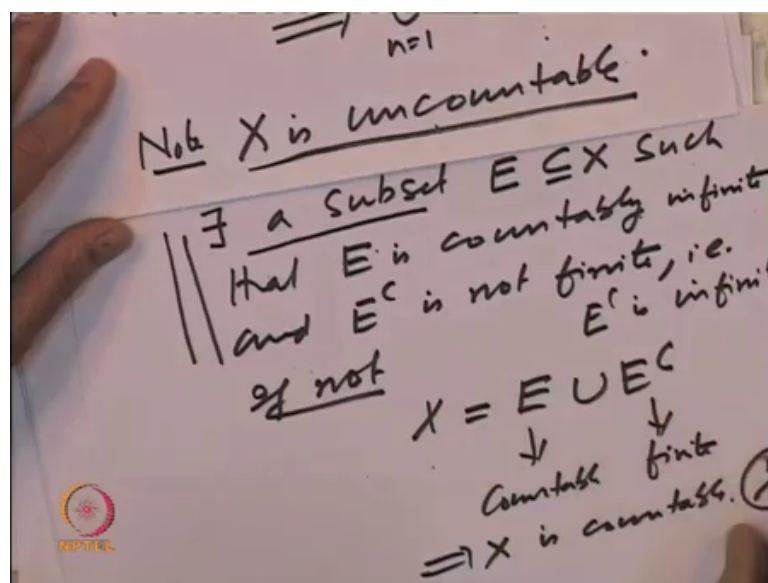 ⟹ ∪
n=1
Note X is uncountable.
∃ a subset E ⊆ X such
that E is countably infinite
and E^c is not finite, i.e.
E^c is infinit
If not
X = E ∪ E^c
↓ ↓
Countable finite
⟹ X is countable.
NPTEL